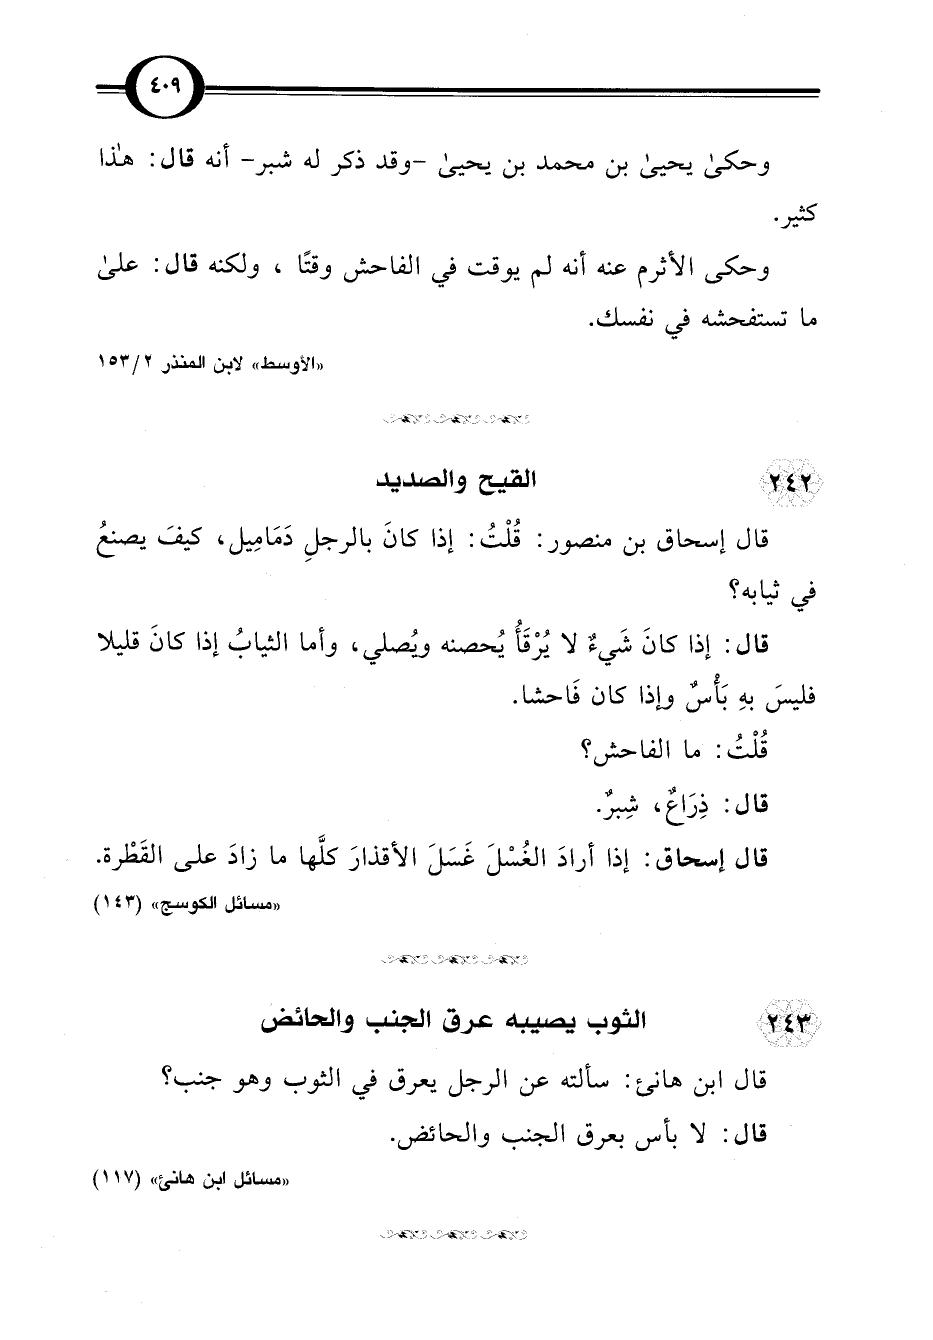 ٤٠٩
وحكىٰ يحيىٰ بن محمد بن يحيىٰ -وقد ذكر له شبر- أنه قال: هٰذا
كثير.
وحكى الأثرم عنه أنه لم يوقت في الفاحش وقتًا ، ولكنه قال: علىٰ
ما تستفحشه في نفسك.
«الأوسط» لابن المنذر ١٥٣/٢
٢٤٢ القيح والصديد
قال إسحاق بن منصور: قُلْتُ: إذا كانَ بالرجلِ دَمَامِيل، كيفَ يصنعُ
في ثيابه؟
قال: إذا كانَ شَيءٌ لا يُرْقَأُ يُحصنه ويُصلي، وأما الثيابُ إذا كانَ قليلا
فليسَ بهِ بَأْسٌ وإذا كان فَاحشا.
قُلْتُ: ما الفاحش؟
قال: ذِرَاعٌ، شِبرٌ.
قال إسحاق: إذا أرادَ الغُسْلَ غَسَلَ الأقذارَ كلَّها ما زادَ على القَطْرة.
«مسائل الكوسج» (١٤٣)
٢٤٣ الثوب يصيبه عرق الجنب والحائض
قال ابن هانئ: سألته عن الرجل يعرق في الثوب وهو جنب؟
قال: لا بأس بعرق الجنب والحائض.
«مسائل ابن هانئ» (١١٧)